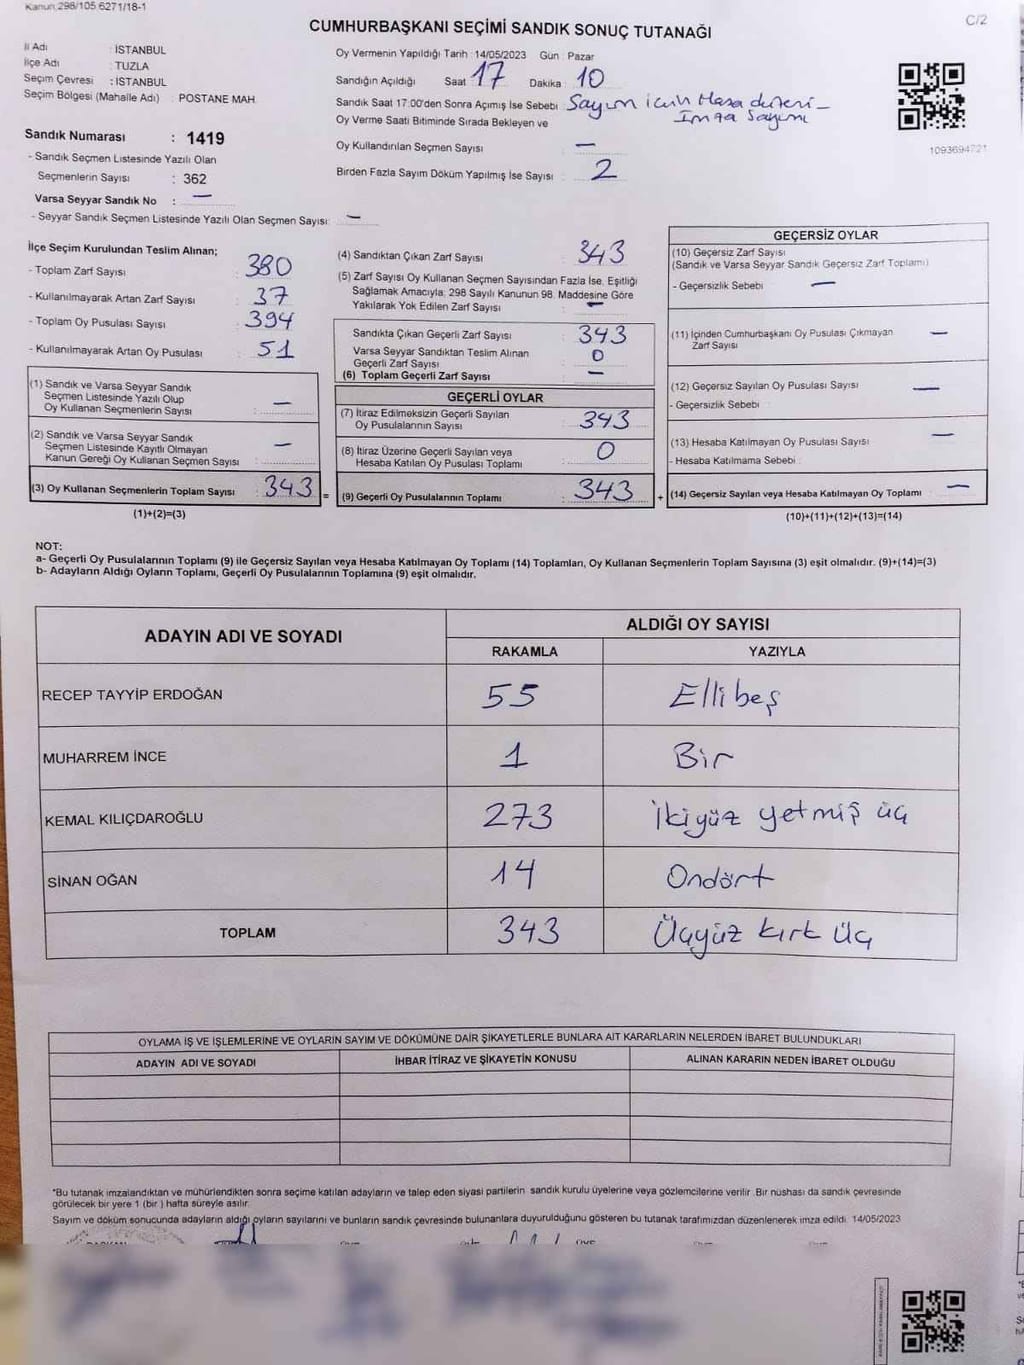 Kanun:298/105 6271/18-1
C/2
CUMHURBAŞKANI SEÇİMİ SANDIK SONUÇ TUTANAĞI
İl Adı : İSTANBUL
İlçe Adı : TUZLA
Seçim Çevresi : İSTANBUL
Seçim Bölgesi (Mahalle Adı) : POSTANE MAH.
Sandık Numarası : 1419
- Sandık Seçmen Listesinde Yazılı Olan
Seçmenlerin Sayısı : 362
Varsa Seyyar Sandık No : —
- Seyyar Sandık Seçmen Listesinde Yazılı Olan Seçmen Sayısı: —
Oy Vermenin Yapıldığı Tarih : 14/05/2023 Gün : Pazar
Sandığın Açıldığı Saat 17 Dakika : 10
Sandık Saat 17:00'den Sonra Açımış İse Sebebi : Sayım için Masa düzeni -
İmza Sayımı
Oy Verme Saati Bitiminde Sırada Bekleyen ve
Oy Kullandırılan Seçmen Sayısı : —
Birden Fazla Sayım Döküm Yapılmış İse Sayısı : 2
1093694721
İlçe Seçim Kurulundan Teslim Alınan;
- Toplam Zarf Sayısı : 380
- Kullanılmayarak Artan Zarf Sayısı : 37
- Toplam Oy Pusulası Sayısı : 394
- Kullanılmayarak Artan Oy Pusulası : 51
(1) Sandık ve Varsa Seyyar Sandık
Seçmen Listesinde Yazılı Olup
Oy Kullanan Seçmenlerin Sayısı : —
(2) Sandık ve Varsa Seyyar Sandık
Seçmen Listesinde Kayıtlı Olmayan
Kanun Gereği Oy Kullanan Seçmen Sayısı : —
(3) Oy Kullanan Seçmenlerin Toplam Sayısı : 343
(1)+(2)=(3)
=
(4) Sandıktan Çıkan Zarf Sayısı : 343
(5) Zarf Sayısı Oy Kullanan Seçmen Sayısından Fazla İse, Eşitliği
Sağlamak Amacıyla; 298 Sayılı Kanunun 98. Maddesine Göre
Yakılarak Yok Edilen Zarf Sayısı : —
Sandıkta Çıkan Geçerli Zarf Sayısı : 343
Varsa Seyyar Sandıktan Teslim Alınan
Geçerli Zarf Sayısı : 0
(6) Toplam Geçerli Zarf Sayısı : —
GEÇERLİ OYLAR
(7) İtiraz Edilmeksizin Geçerli Sayılan
Oy Pusulalarının Sayısı : 343
(8) İtiraz Üzerine Geçerli Sayılan veya
Hesaba Katılan Oy Pusulası Toplamı : 0
(9) Geçerli Oy Pusulalarının Toplamı : 343
+
GEÇERSİZ OYLAR
(10) Geçersiz Zarf Sayısı
(Sandık ve Varsa Seyyar Sandık Geçersiz Zarf Toplamı)
- Geçersizlik Sebebi : —
(11) İçinden Cumhurbaşkanı Oy Pusulası Çıkmayan —
Zarf Sayısı
(12) Geçersiz Sayılan Oy Pusulası Sayısı : —
- Geçersizlik Sebebi :
(13) Hesaba Katılmayan Oy Pusulası Sayısı : —
- Hesaba Katılmama Sebebi :
(14) Geçersiz Sayılan veya Hesaba Katılmayan Oy Toplamı : —
(10)+(11)+(12)+(13)=(14)
NOT:
a- Geçerli Oy Pusulalarının Toplamı (9) ile Geçersiz Sayılan veya Hesaba Katılmayan Oy Toplamı (14) Toplamları, Oy Kullanan Seçmenlerin Toplam Sayısına (3) eşit olmalıdır. (9)+(14)=(3)
b- Adayların Aldığı Oyların Toplamı, Geçerli Oy Pusulalarının Toplamına (9) eşit olmalıdır.
ADAYIN ADI VE SOYADI
ALDIĞI OY SAYISI
RAKAMLA YAZIYLA
RECEP TAYYİP ERDOĞAN 55 Elli beş
MUHARREM İNCE 1 Bir
KEMAL KILIÇDAROĞLU 273 İkiyüz yetmiş üç
SİNAN OĞAN 14 Ondört
TOPLAM 343 Üçyüz kırk üç
OYLAMA İŞ VE İŞLEMLERİNE VE OYLARIN SAYIM VE DÖKÜMÜNE DAİR ŞİKAYETLERLE BUNLARA AİT KARARLARIN NELERDEN İBARET BULUNDUKLARI
ADAYIN ADI VE SOYADI İHBAR İTİRAZ VE ŞİKAYETİN KONUSU ALINAN KARARIN NEDEN İBARET OLDUĞU
*Bu tutanak imzalandıktan ve mühürlendikten sonra seçime katılan adayların ve talep eden siyasi partilerin sandık kurulu üyelerine veya gözlemcilerine verilir. Bir nüshası da sandık çevresinde
görülecek bir yere 1 (bir ) hafta süreyle asılır.
Sayım ve döküm sonucunda adayların aldığı oyların sayılarını ve bunların sandık çevresinde bulunanlara duyurulduğunu gösteren bu tutanak tarafımızdan düzenlenerek imza edildi. 14/05/2023